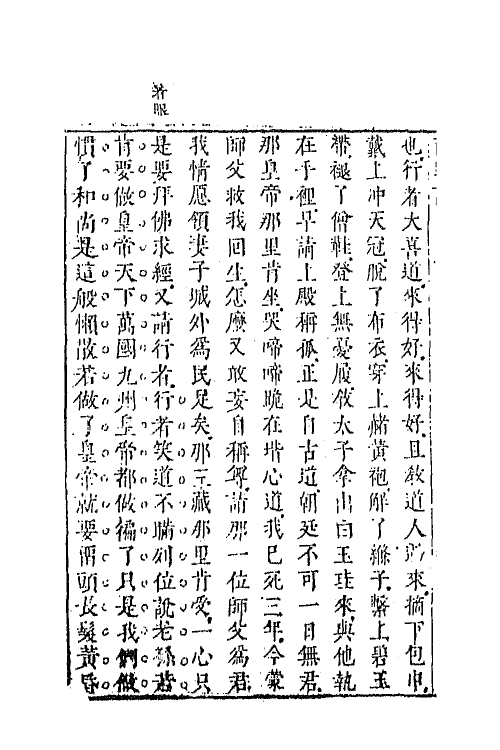 着眼
也行者大喜道來得好來得好且教道人過來摘下包巾
戴上冲天冠脫了布衣穿上赭黃袍解了縧子繫上碧玉
帶褪了僧鞋登上無憂履教太子拿出白玉珪來與他執
在手裡早請上殿稱孤正是自古道朝廷不可一日無君
那皇帝那里肯坐哭啼啼跪在堦心道我已死三年今蒙
師父救我回生怎麼又敢妄自稱尊請那一位師父為君
我情愿領妻子城外為民足矣那三藏那里肯受一心只
是要拜佛求經又請行者行者笑道不瞞列位說老孫若
肯要做皇帝天下萬國九州皇帝都做徧了只是我們做
慣了和尚是這般懶散若做了皇帝就要留頭長髮黃昏